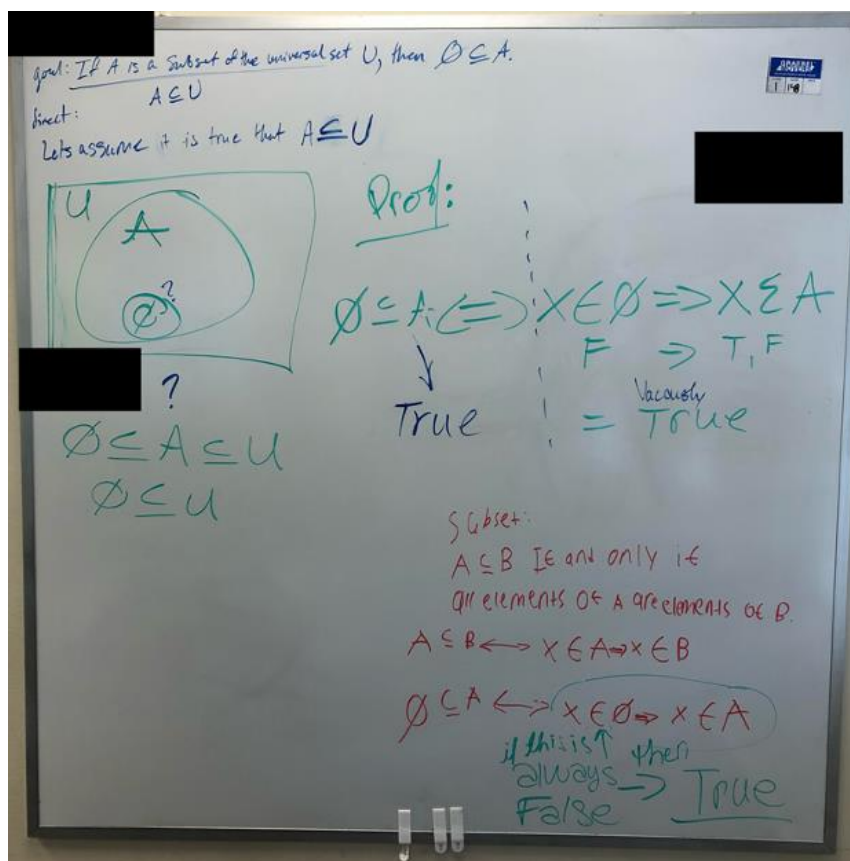 goal: If A is a subset of the universal set U, then ∅ ⊆ A.
A ⊆ U
direct:
Lets assume it is true that A ⊆ U
U
A
∅?
?
∅ ⊆ A ⊆ U
∅ ⊆ U
Proof:
∅ ⊆ A. ⟺ X ∈ ∅ ⟹ X ∈ A
F ⟹ T, F
True
= Vacously True
Subset:
A ⊆ B If and only if
all elements of A are elements of B.
A ⊆ B ⟷ X ∈ A ⇒ x ∈ B
∅ ⊆ A ⟷ x ∈ ∅ ⇒ x ∈ A
if this is ↑ then
always → True
False